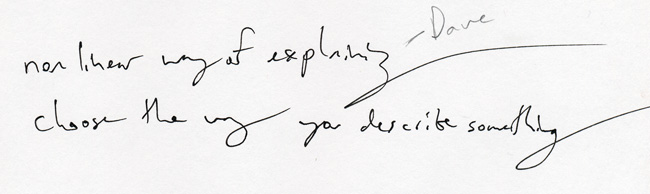 non linear way of explaining - Dave
choose the way you describe something